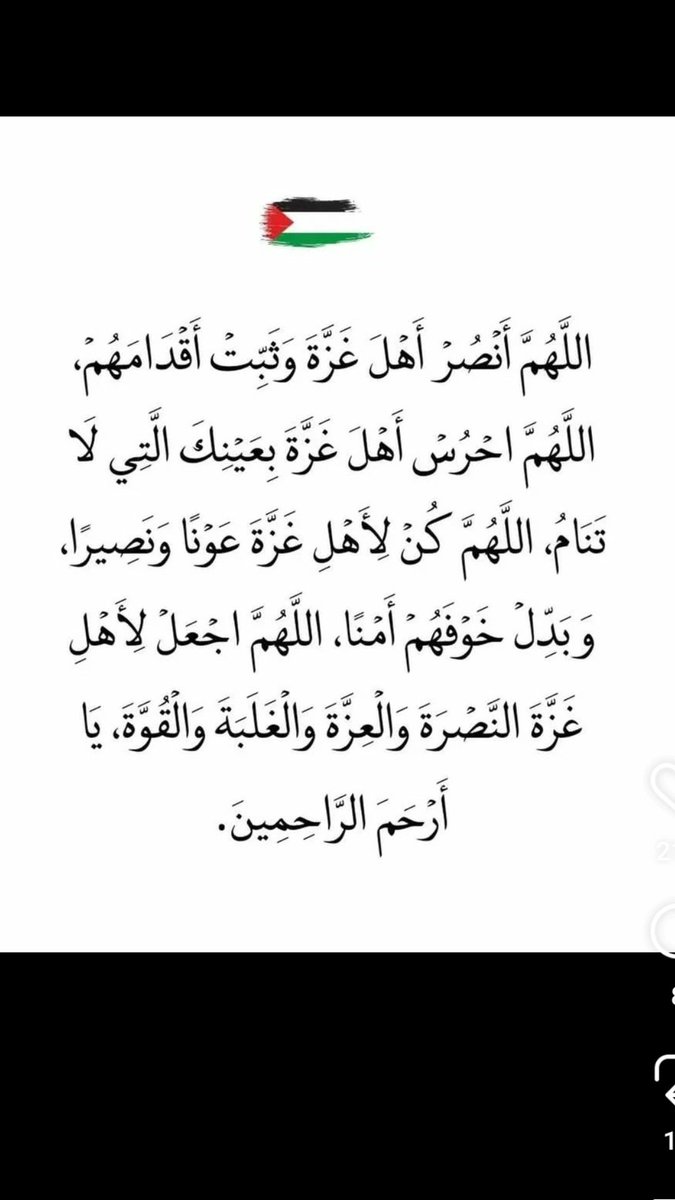 اللَّهُمَّ أَنْصُرْ أَهْلَ غَزَّةَ وَثَبِّتْ أَقْدَامَهُمْ،
اللَّهُمَّ احْرُسْ أَهْلَ غَزَّةَ بِعَيْنِكَ الَّتِي لَا
تَنَامُ، اللَّهُمَّ كُنْ لِأَهْلِ غَزَّةَ عَوْنًا وَنَصِيرًا،
وَبَدِّلْ خَوْفَهُمْ أَمْنًا، اللَّهُمَّ اجْعَلْ لِأَهْلِ
غَزَّةَ النَّصْرَةَ وَالْعِزَّةَ وَالْغَلَبَةَ وَالْقُوَّةَ، يَا
أَرْحَمَ الرَّاحِمِينَ.